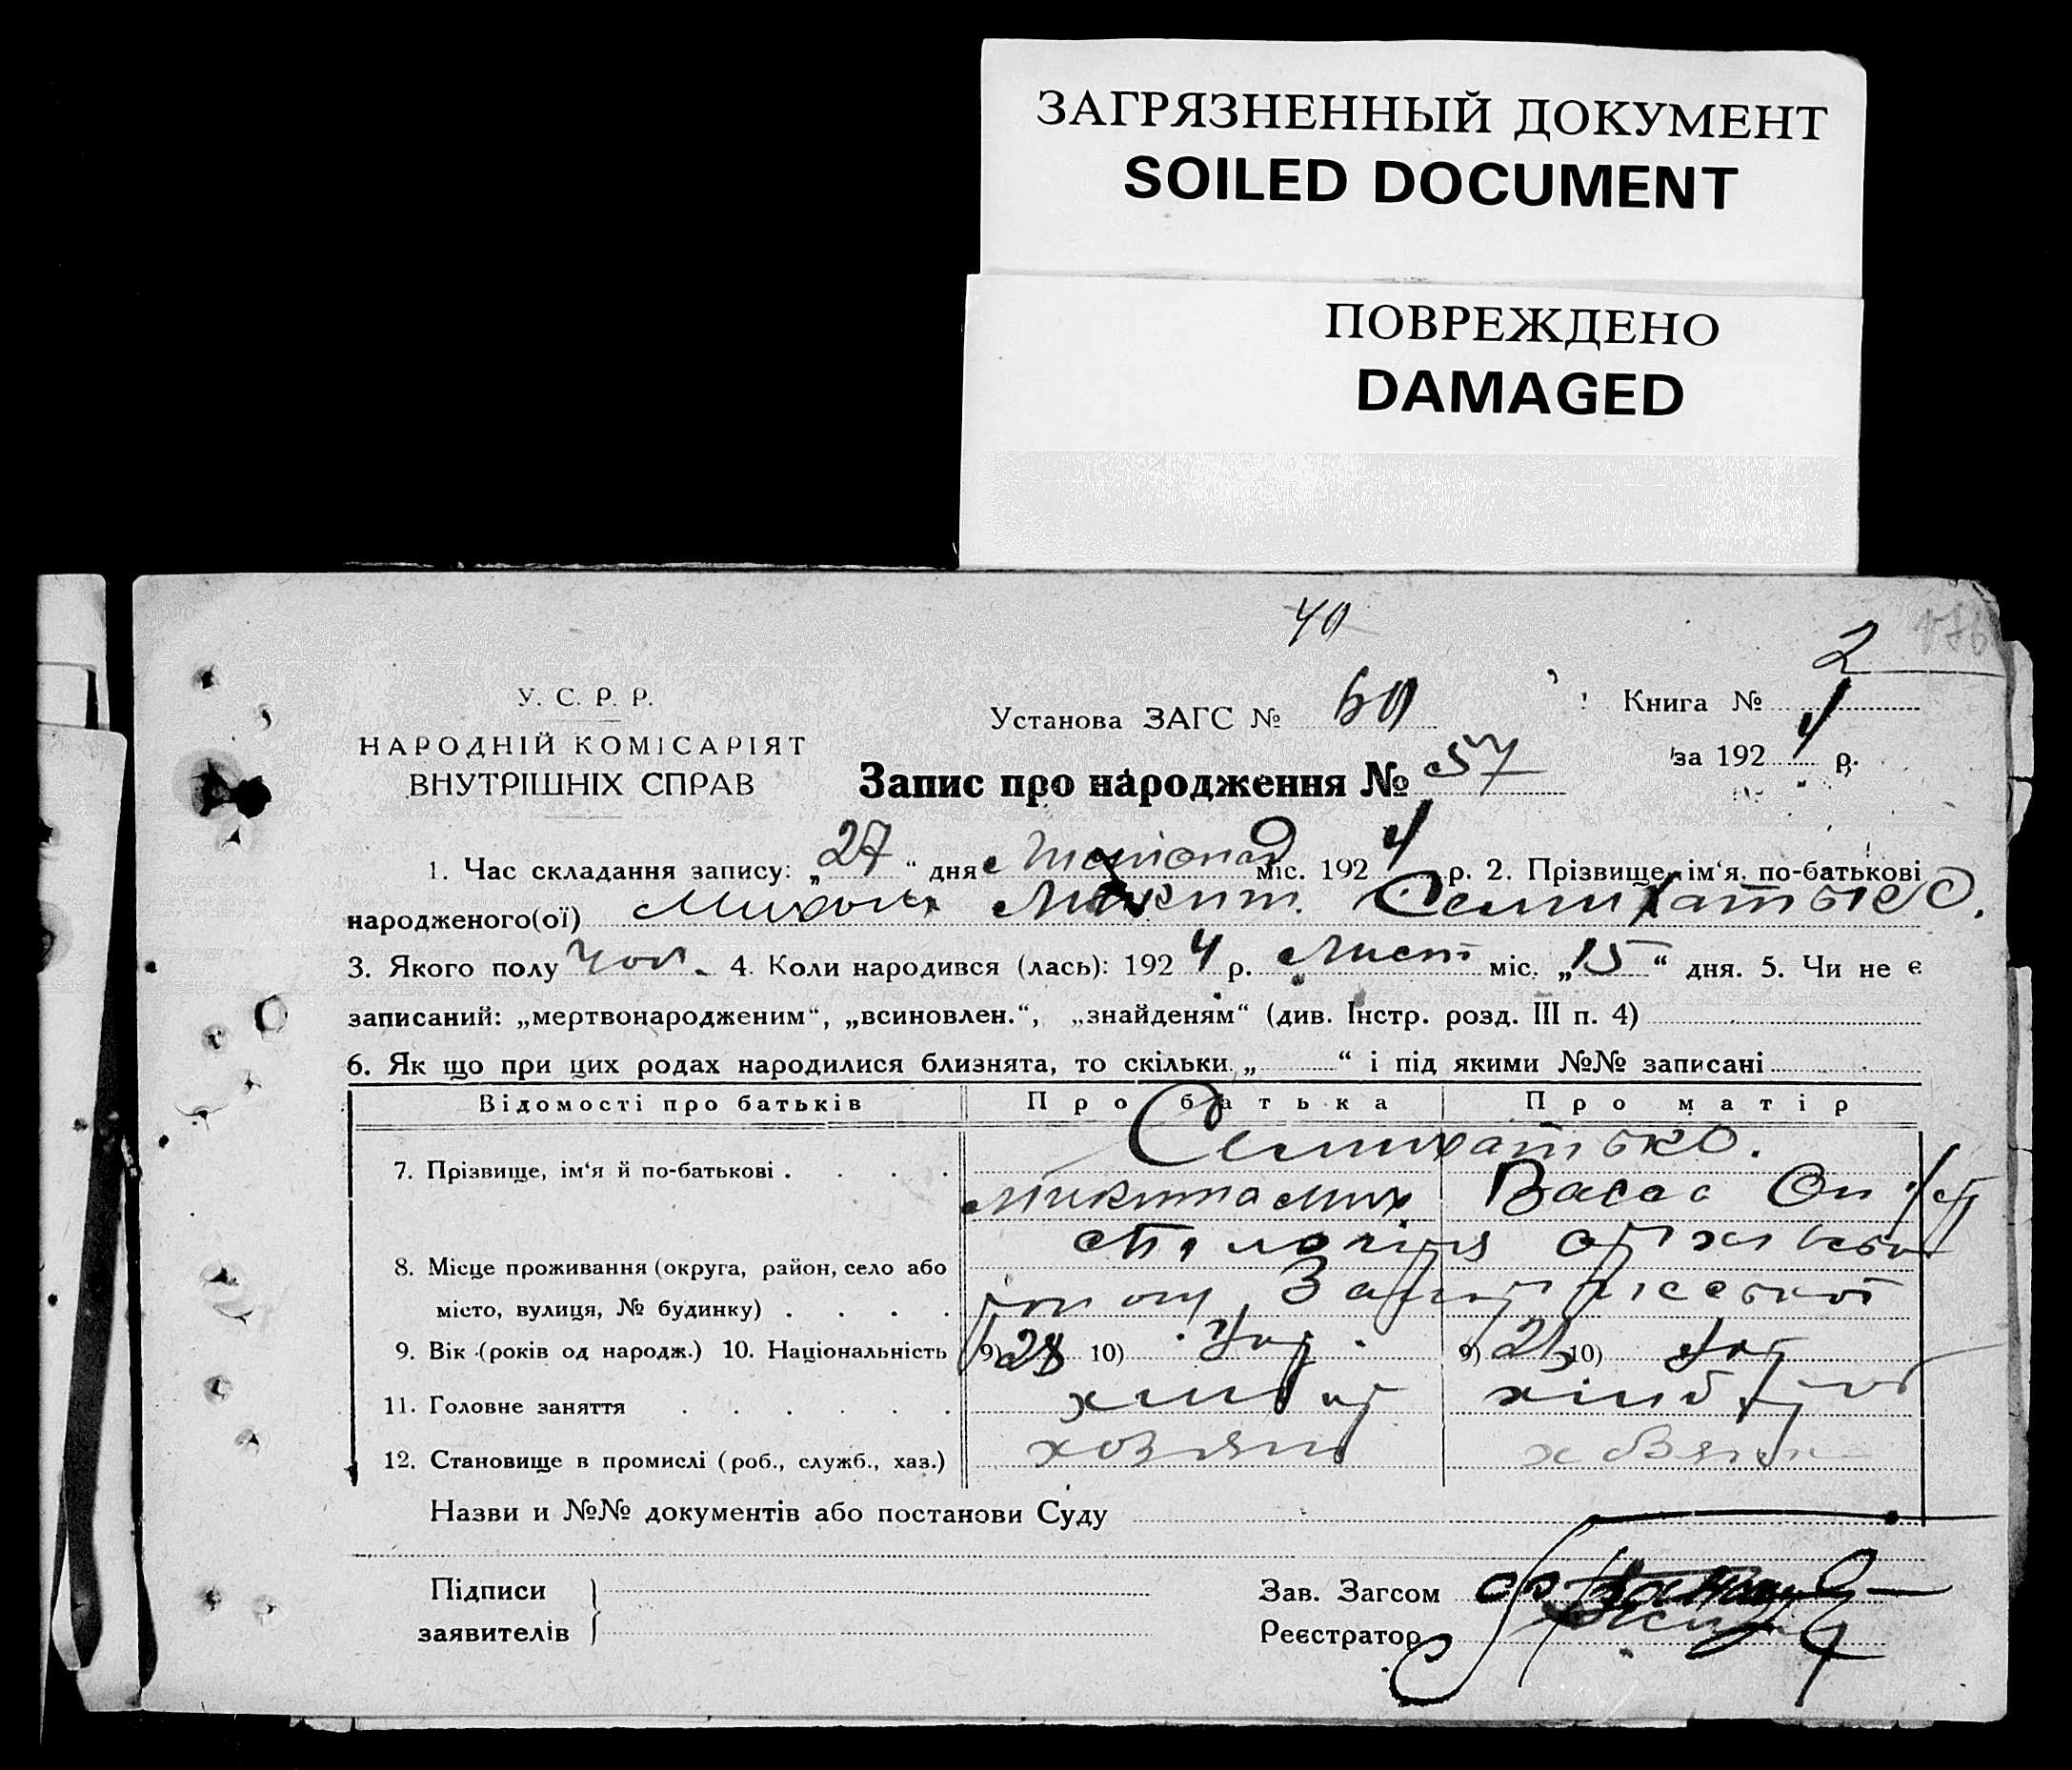 ЗАГРЯЗНЕННЫЙ ДОКУМЕНТ
SOILED DOCUMENT
ПОВРЕЖДЕНО
DAMAGED
40
2
У. С. Р. Р.
НАРОДНІЙ КОМІСАРІЯТ
ВНУТРІШНІХ СПРАВ
Установа ЗАГС № 60
Книга №
за 1924 р.
Запис про народження № 57
1. Час складання запису: „27“ дня Листопад міс. 1924 р. 2. Прізвище, ім‘я, по-батькові
народженого(ої) Микит. Семихатько.
3. Якого полу чол. 4. Коли народився (лась): 1924 р. Лист міс. „15“ дня. 5. Чи не є
записаний: „мертвонародженим“, „всиновлен.“, „знайденям“ (див. Інстр. розд. III п. 4)
6. Як що при цих родах народилися близнята, то скільки „ “ і під якими №№ записані
Відомості про батьків Про батька Про матір
Семихатько.
7. Прізвище, ім‘я й по-батькові
Микита Мих Васса
8. Місце проживання (округа, район, село або
місто, вулиця, № будинку)
9. Вік (років од народж.) 10. Національність 9) 28 10) Укр. 9) 10) Укр
11. Головне заняття
12. Становище в промислі (роб., служб., хаз.) хозяин
Назви и №№ документів або постанови Суду
Підписи
заявителів
Зав. Загсом
Реєстратор